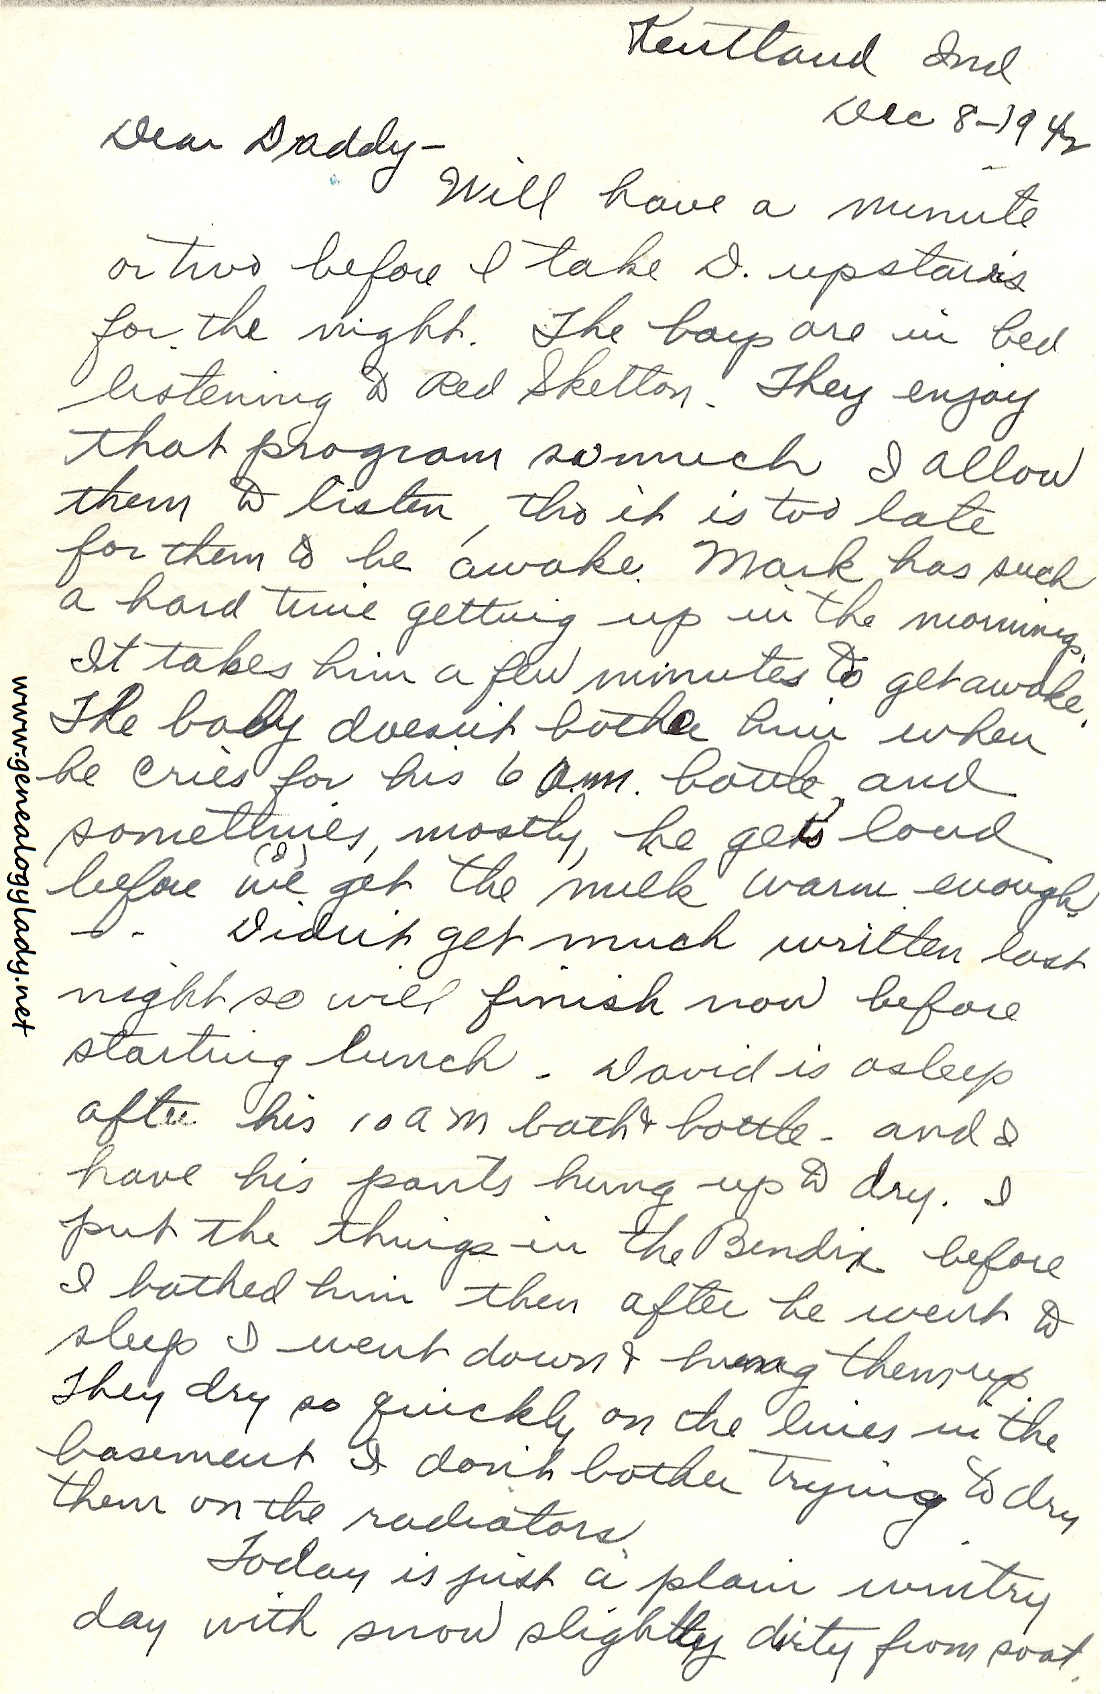 Kentland Ind
Dec 8-1942
Dear Daddy-
Will have a minute
or two before I take D. upstairs
for the night. The boys are in bed
listening to Red Skelton. They enjoy
that program so much I allow
them to listen, tho it is too late
for them to be awake. Mark has such
a hard time getting up in the mornings.
It takes him a few minutes to get awake.
The baby doesn't bother him when
he cries for his 6 a.m. bottle, and
sometimes, mostly, he gets loud
(I)
before we get the milk warm enough.
- - Didn't get much written last
night so will finish now before
starting lunch - David is asleep
after his 10 AM bath & bottle - and I
have his pants hung up to dry. I
put the things in the Bendix before
I bathed him then after he went to
sleep I went down & hung them up.
They dry so quickly on the lines in the
basement I don't bother trying to dry
them on the radiators.
Today is just a plain wintry
day with snow slightly dirty from soot.
www.genealogylady.net